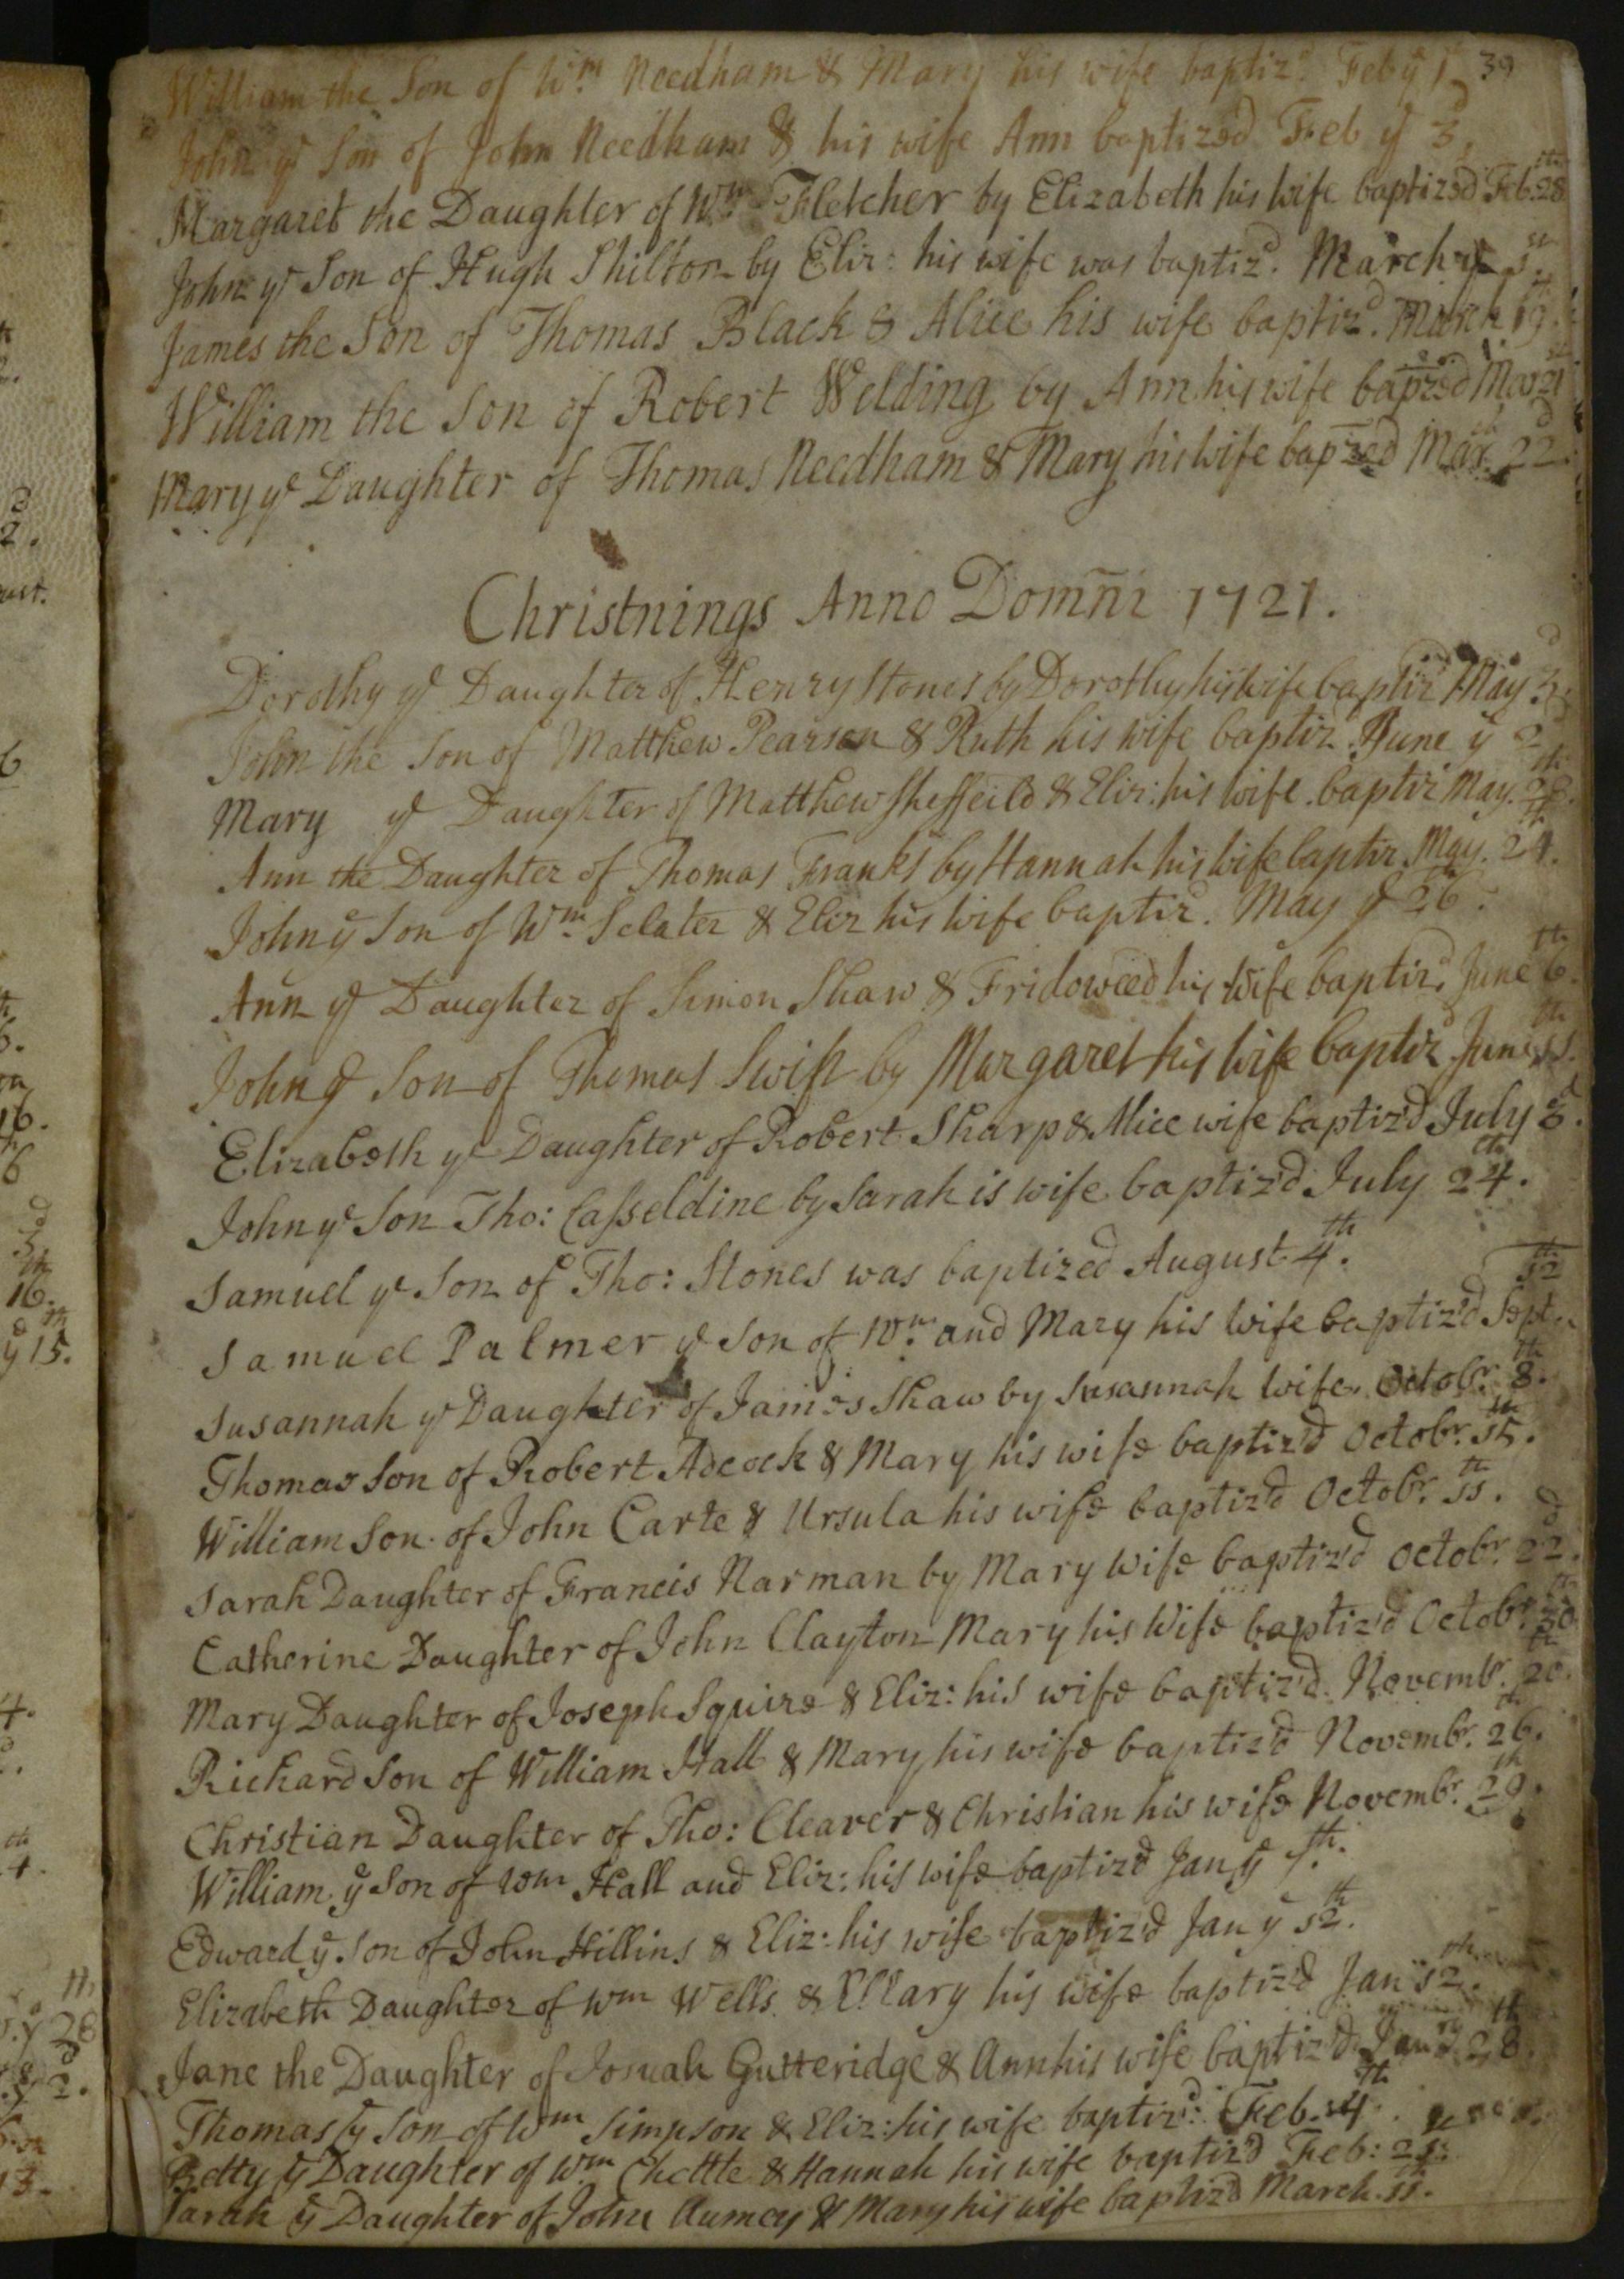 39
William the Son of Wm Needham & Mary his wife baptizd Feb ye 1
John ye Son of John Needham & his wife Ann baptized Feb ye 3d
Margaret the Daughter of Wm Fletcher by Elizabeth his wife baptized Feb. 28th
John ye Son of Hugh Shilton by Eliz: his wife was baptizd. March ye
James the Son of Thomas Black & Alice his wife baptizd. March 19.
William the Son of Robert Welding by Ann his wife bapzed Mar 21st
Mary ye Daughter of Thomas Needham & Mary his wife bapzed Mar. 22d
Christnings Anno Domñi 1721.
Dorothy ye Daughter of Henry Stones by Dorothy his wife baptizd May 3d
John the Son of Matthew Pearson & Ruth his wife baptiz. June ye 2d
Mary ye Daughter of Matthew Sheffeild & Eliz: his wife. baptizd May.
Ann the Daughter of Thomas Franks by Hannah his wife baptiz. May. 24th.
John ye Son of Wm Sclater & Eliz his wife baptizd. May ye 26th.
Ann ye Daughter of Simon Shaw & Fridoweed his wife baptizd. June 6th.
John ye Son of Thomas Swift by Margaret his wife baptizd June 11th.
Elizabeth ye Daughter of Robert Sharp & Alice wife baptiz'd July 3d.
John ye Son Tho: Casseldine by Sarah is wife baptiz'd July 24th.
Samuel ye Son of Tho: Stones was baptized August 4th.
Samuel Palmer ye Son of Wm. and Mary his wife baptiz'd Sept. 12th
Susannah ye Daughter of James Shaw by Susannah wife. Octobr. 8th.
Thomas Son of Robert Adcock & Mary his wife baptiz'd Octobr. 15th.
William Son of John Carte & Ursula his wife baptiz'd Octobr. 15th.
Sarah Daughter of Francis Narman by Mary wife baptiz'd Octobr. 22d.
Catherine Daughter of John Clayton Mary his Wife baptiz'd Octobr. 30th
Mary Daughter of Joseph Squire & Eliz: his wife baptiz'd. Novembr. 20th.
Richard Son of William Hall & Mary his wife baptiz'd Novembr. 26th.
Christian Daughter of Tho: Cleaver & Christian his wife Novembr. 29th.
William ye Son of Wm Hall and Eliz: his wife baptiz'd Jan ye
Edward ye Son of John Hillins & Eliz: his wife baptiz'd Jan ye 12th.
Elizabeth Daughter of Wm Wells & Mary his wife baptiz'd Jan 12th.
Jane the Daughter of Josuah Gutteridge & Ann his wife baptiz'd 28th.
Thomas ye Son of Wm Simpson & Eliz: his wife baptizd: Feb. 14th.
Betty ye Daughter of Wm Chettle & Hannah his wife baptiz'd Feb: 21st.
Sarah ye Daughter of John & Mary his wife baptiz'd March. 11th.